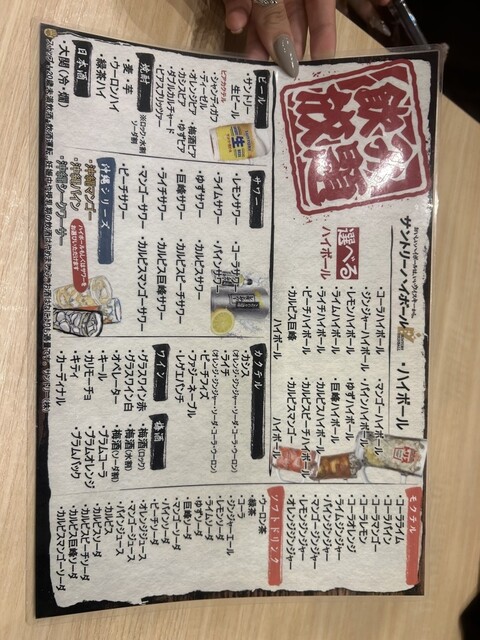 飲み放題
サントリーハイボール
・ハイボール
選べる
ハイボール
・コーラハイボール
・ジンジャーハイボール
・レモンハイボール
・ライムハイボール
・ライチハイボール
・ピーチハイボール
・カルピス巨峰
ハイボール
・マンゴーハイボール
・パインハイボール
・ゆずハイボール
・巨峰ハイボール
・カルピスハイボール
・カルピスピーチハイボール
・カルピスマンゴー
ハイボール
モクテル
・コーラライム
・コーラパイン
・コーラマンゴー
・コーラレモン
・コーラオレンジ
・ライムジンジャー
・パインジンジャー
・マンゴージンジャー
・レモンジンジャー
・オレンジジンジャー
ビール
・サントリー
生ビール
ビアカクテル
・シャンディガフ
・ディーゼル
・オレンジビア
・カシスビア
・ダブルカルチャード
・ビアスプリッツァー
・梅酒ビア
・ゆずビア
焼酎
※ロック・水割
ソーダ割
・麦・芋
・ウーロンハイ
・緑茶ハイ
日本酒
・大関(冷・燗)
サワー
・レモンサワー
・ライムサワー
・ゆずサワー
・巨峰サワー
・ライチサワー
・マンゴーサワー
・ピーチサワー
・コーラサワー
・パインサワー
・カルピスサワー
・カルピスピーチサワー
・カルピス巨峰サワー
・カルピスマンゴーサワー
沖縄シリーズ
・沖縄マンゴー
・沖縄パイン
・沖縄シークワーサー
ハイボールもしくはサワーを
お選びいただけます
カクテル
・カシス
(オレンジ・ジンジャー・ソーダ・コーラ・ウーロン)
・ライチ
(オレンジ・ジンジャー・ソーダ・コーラ・ウーロン)
・ピーチフィズ
・ファジーネーブル
・レゲエパンチ
ワイン
・グラスワイン赤
・グラスワイン白
・オペレーター
・キール
・カリモーチョ
・キティ
・カーディナル
梅酒
・梅酒(ロック)
・梅酒(水割)
・梅酒(ソーダ割)
・プラムコーラ
・プラムオレンジ
・プラムバック
ソフトドリンク
・ウーロン茶
・緑茶
・コーラ
・ジンジャーエール
・レモンソーダ
・ライムソーダ
・ゆずソーダ
・巨峰ソーダ
・マンゴーソーダ
・ピーチソーダ
・パインソーダ
・オレンジジュース
・マンゴージュース
・パインジュース
・カルピス
・カルピスソーダ
・カルピスピーチソーダ
・カルピス巨峰ソーダ
・カルピスマンゴーソーダ